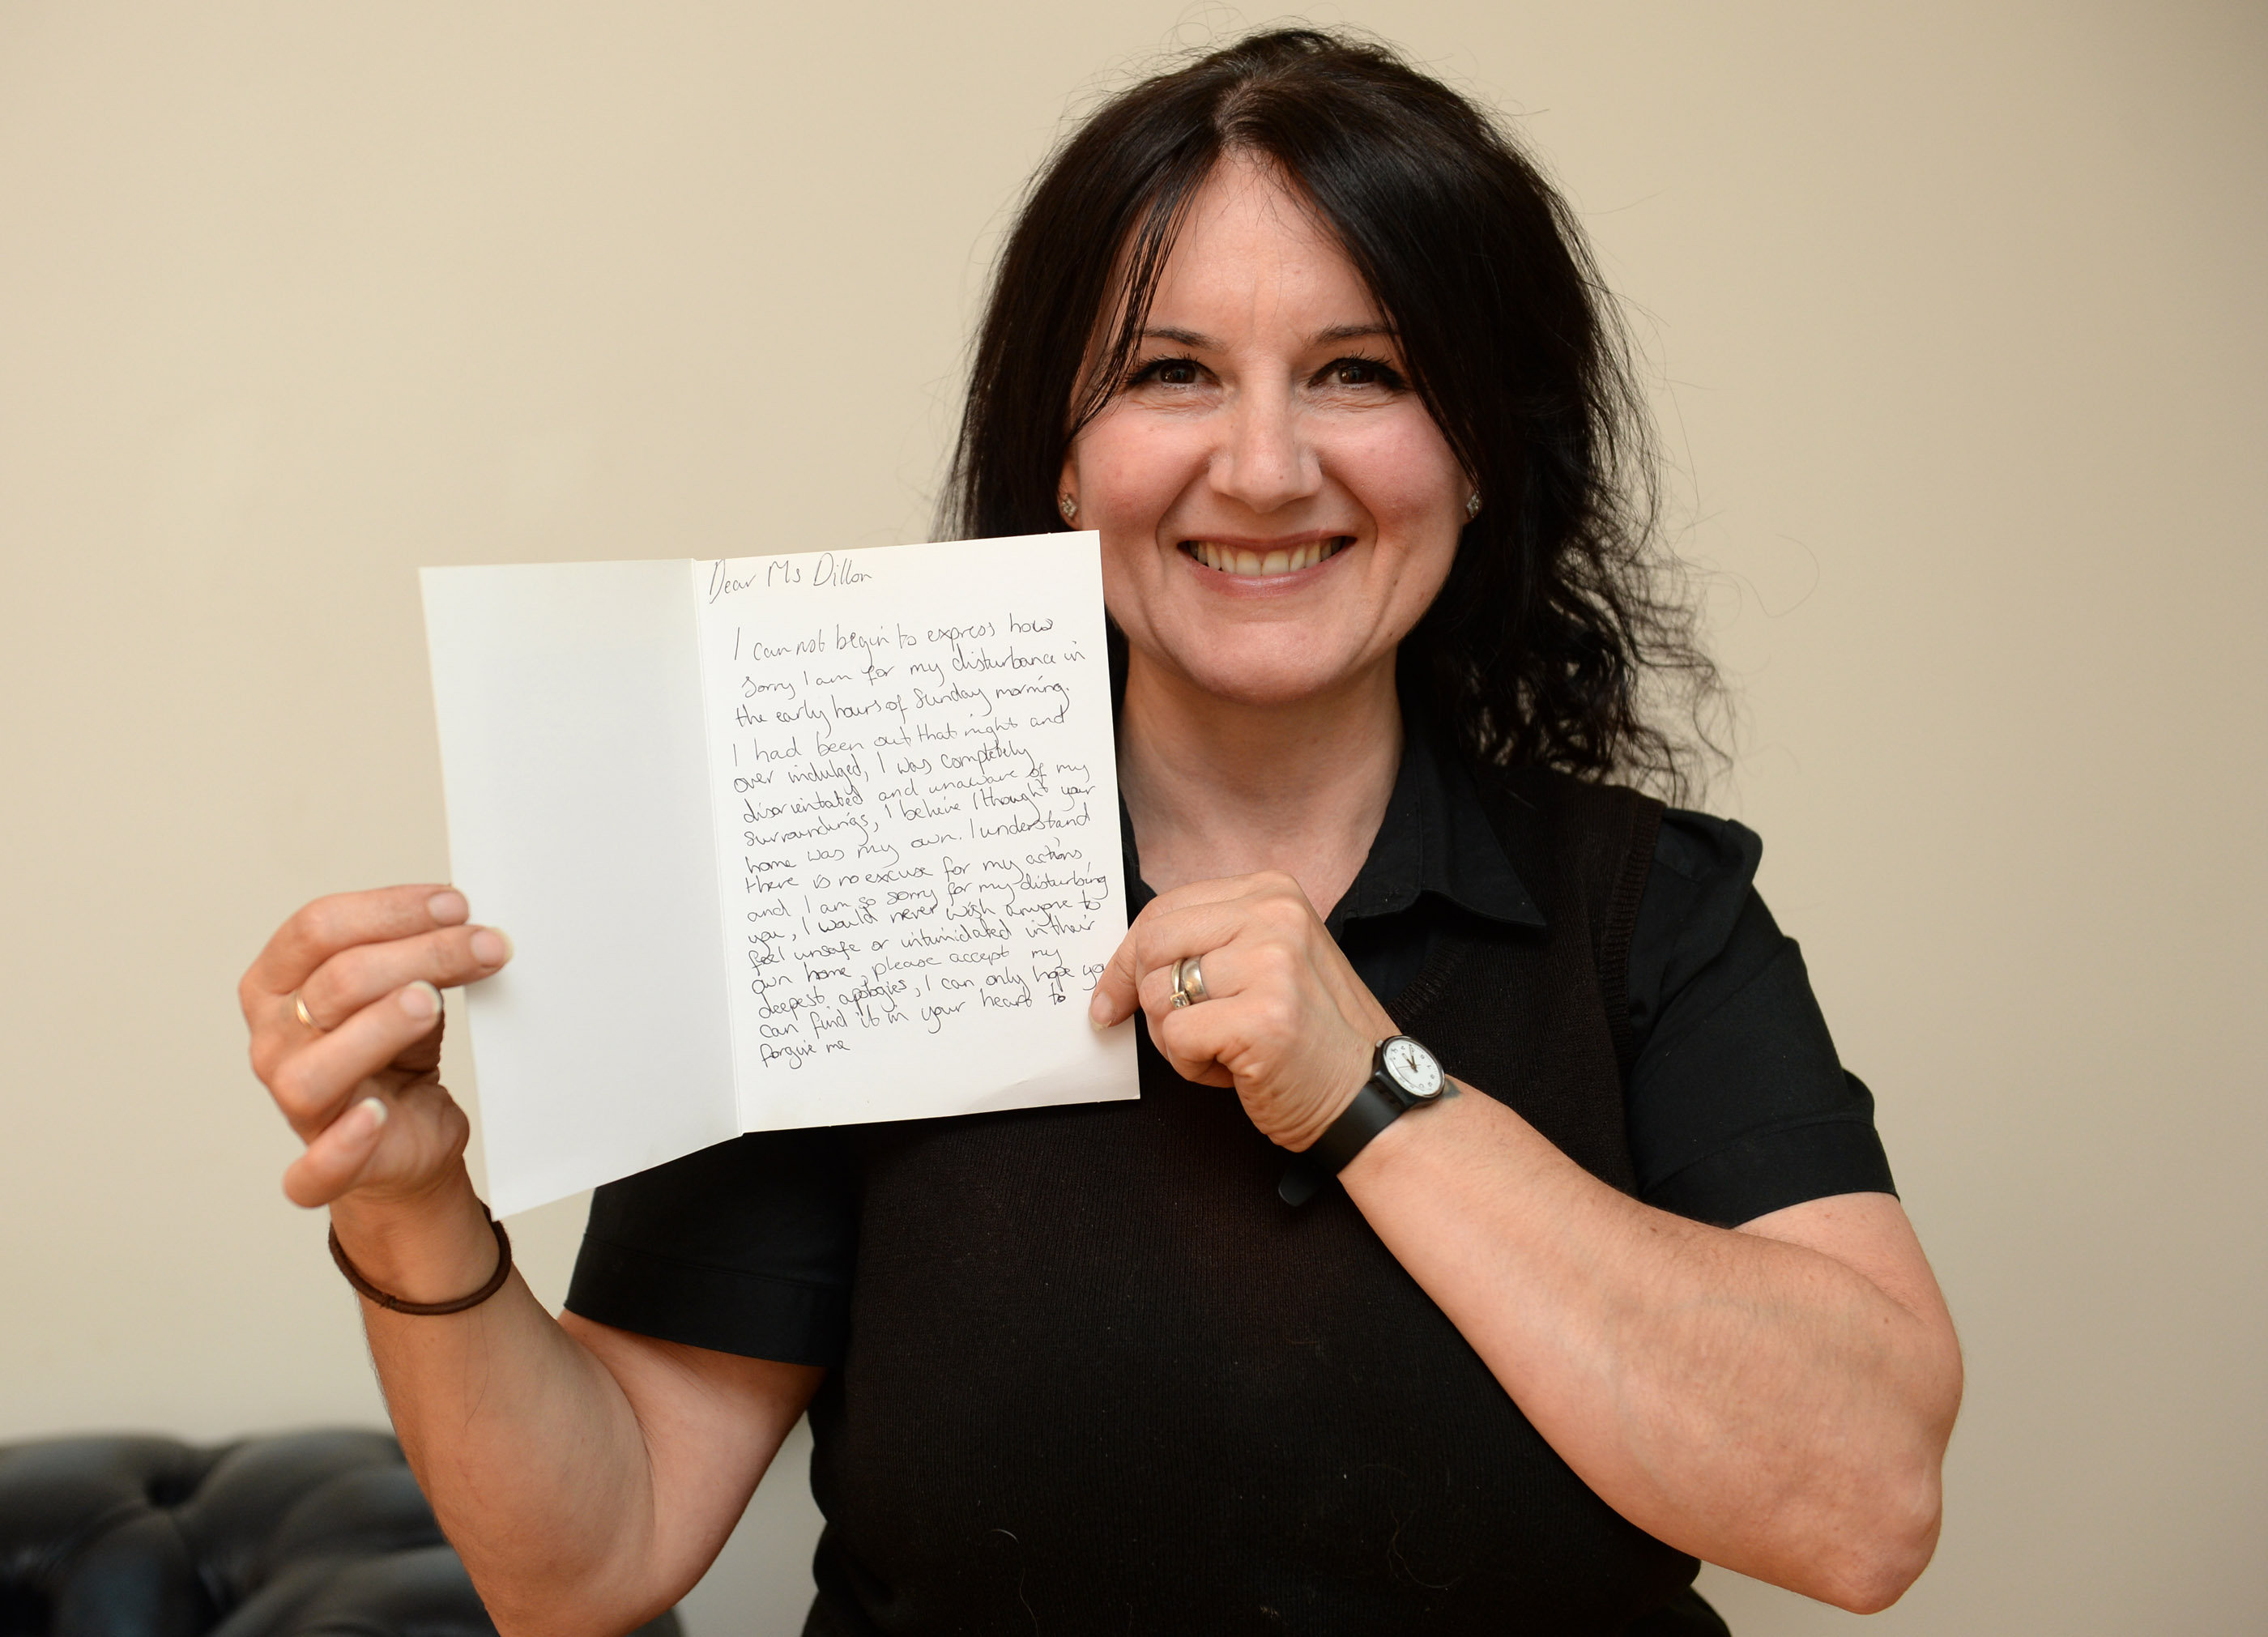 Dear Ms Dillon
I cannot begin to express how
sorry I am for my disturbance in
the early hours of Sunday morning.
I had been out that night and
over indulged, I was completely
disorientated and unaware of my
surroundings, I believe I thought your
home was my own. I understand
there is no excuse for my actions,
and I am so sorry for my disturbing
you, I would never wish anyone to
feel unsafe or intimidated in their
own home, please accept my
deepest apologies, I can only hope you
can find it in your heart to
forgive me